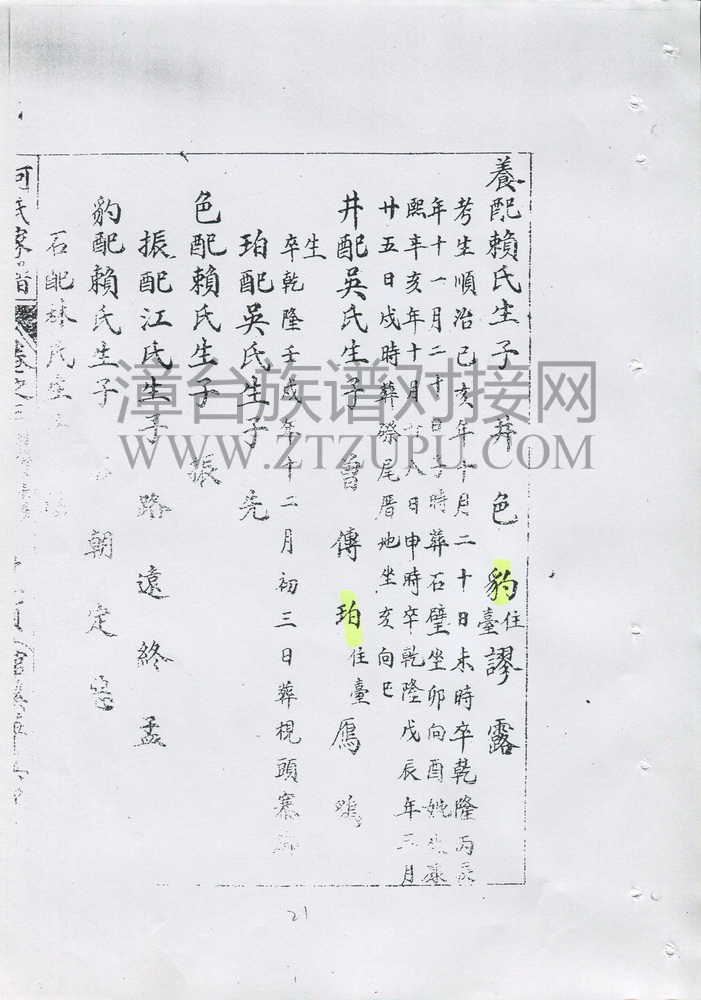 養配賴氏生子 井 色 豹 住臺 謬 露
考生順治己亥年十月二十日未時卒乾隆丙辰
年十一月二十日子時葬石壁坐卯向酉妣生康
熙辛亥年十月廿八日申時卒乾隆戊辰年三月
廿五日戌時葬磜尾厝地坐亥向巳
井配吳氏生子 會 傳 珀 住臺 鴈
生
卒乾隆壬戌年十二月初三日葬梘頭寨
珀配吳氏生子 尭
色配賴氏生子 振
振配江氏生子 路 遠 終 孟
豹配賴氏生子 朝 定
石配林氏生
何氏家譜 卷之三
漳台族谱对接网
WWW.ZTZUPU.COM
21